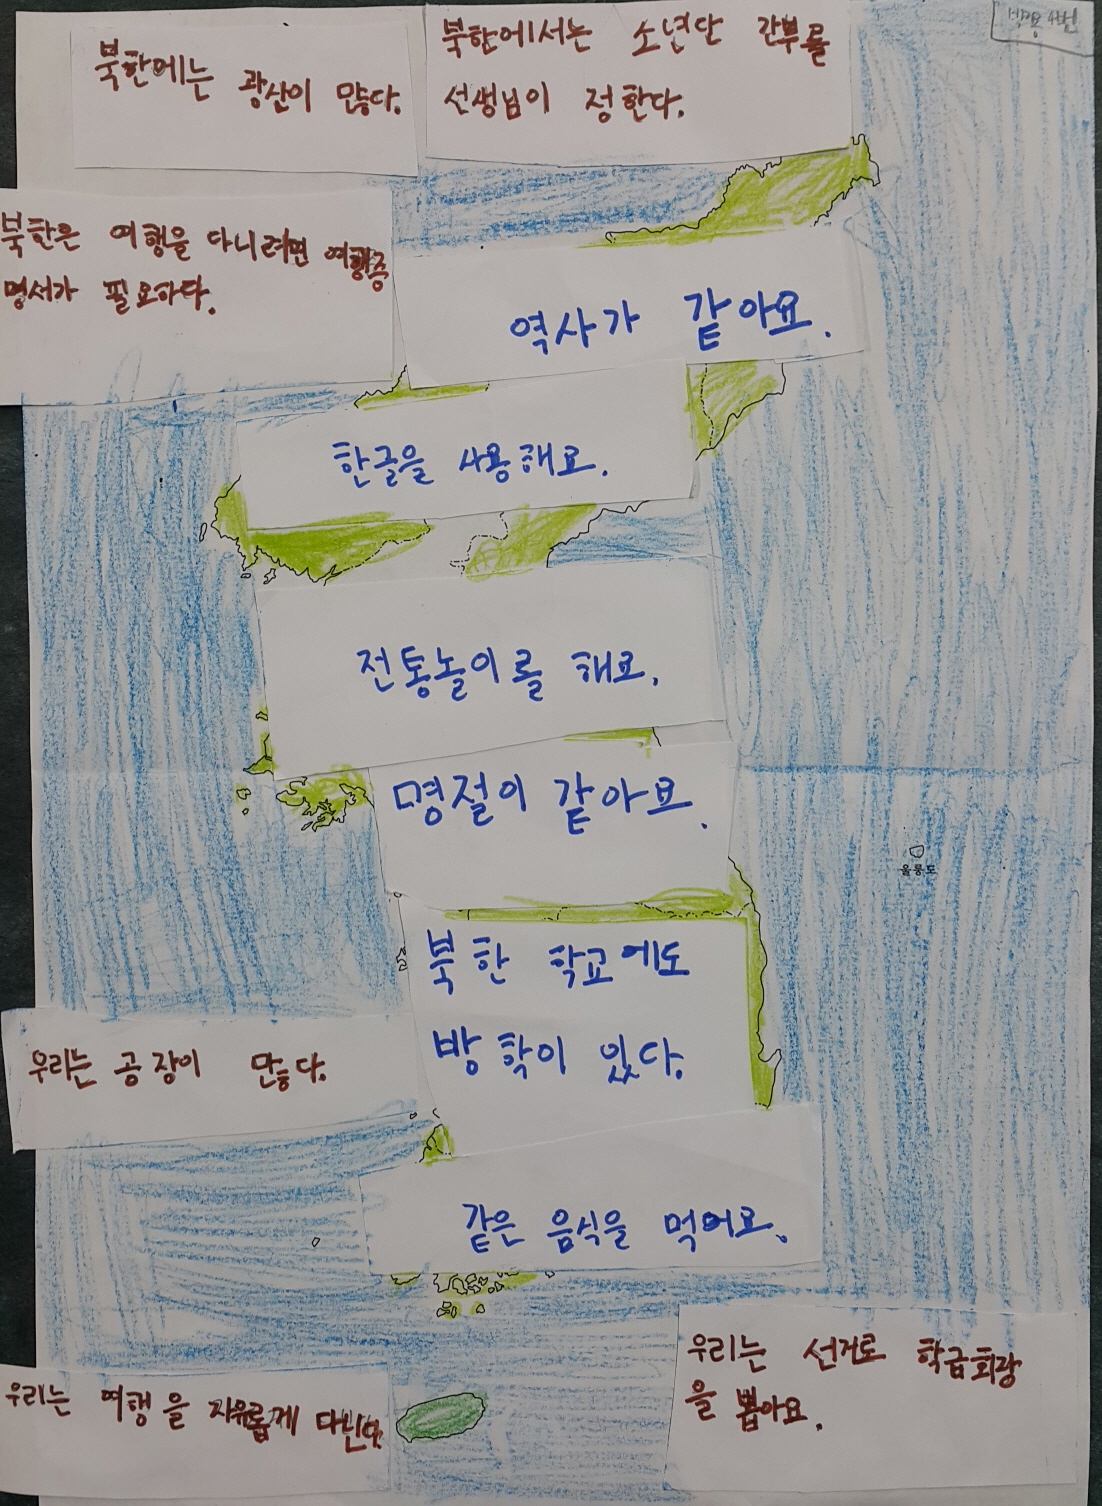 북한에는 광산이 많다.
북한에서는 소년단 간부를
선생님이 정한다.
북한은 여행을 다니려면 여행증
명서가 필요하다.
역사가 같아요.
한글을 사용해요.
전통놀이를 해요.
명절이 같아요.
울릉도
북한 학교에도
방학이 있다.
우리는 공장이 많다.
같은 음식을 먹어요.
우리는 여행을 자유롭게 다닌다
우리는 선거로 학급회장
을 뽑아요.